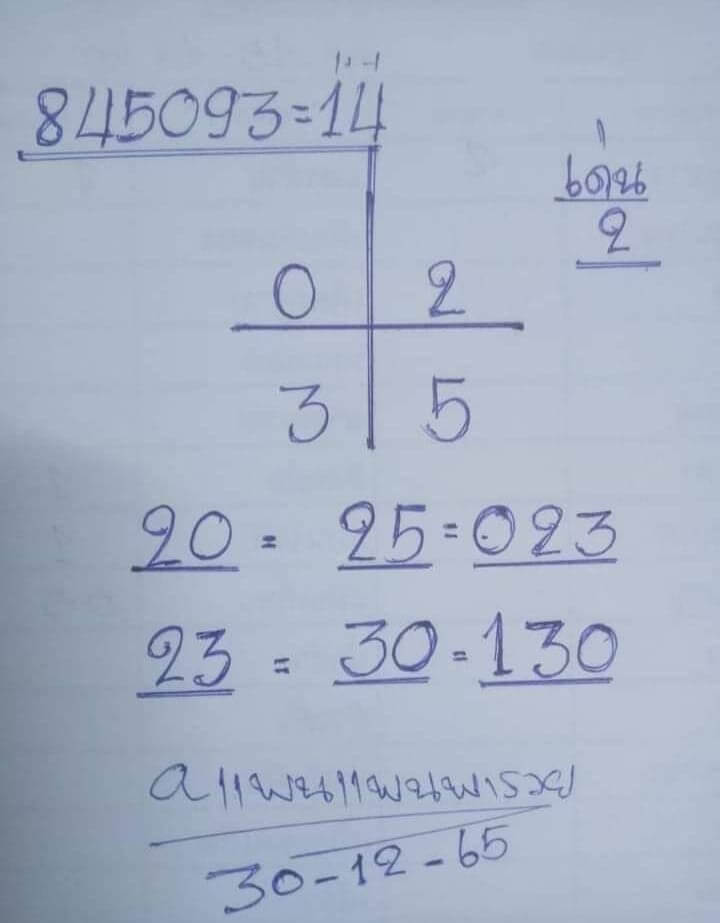 845093=14
เด่น
2
0 2
3 5
20 = 25 = 023
23 = 30 = 130
aแพนแพนพารวย
30-12-65